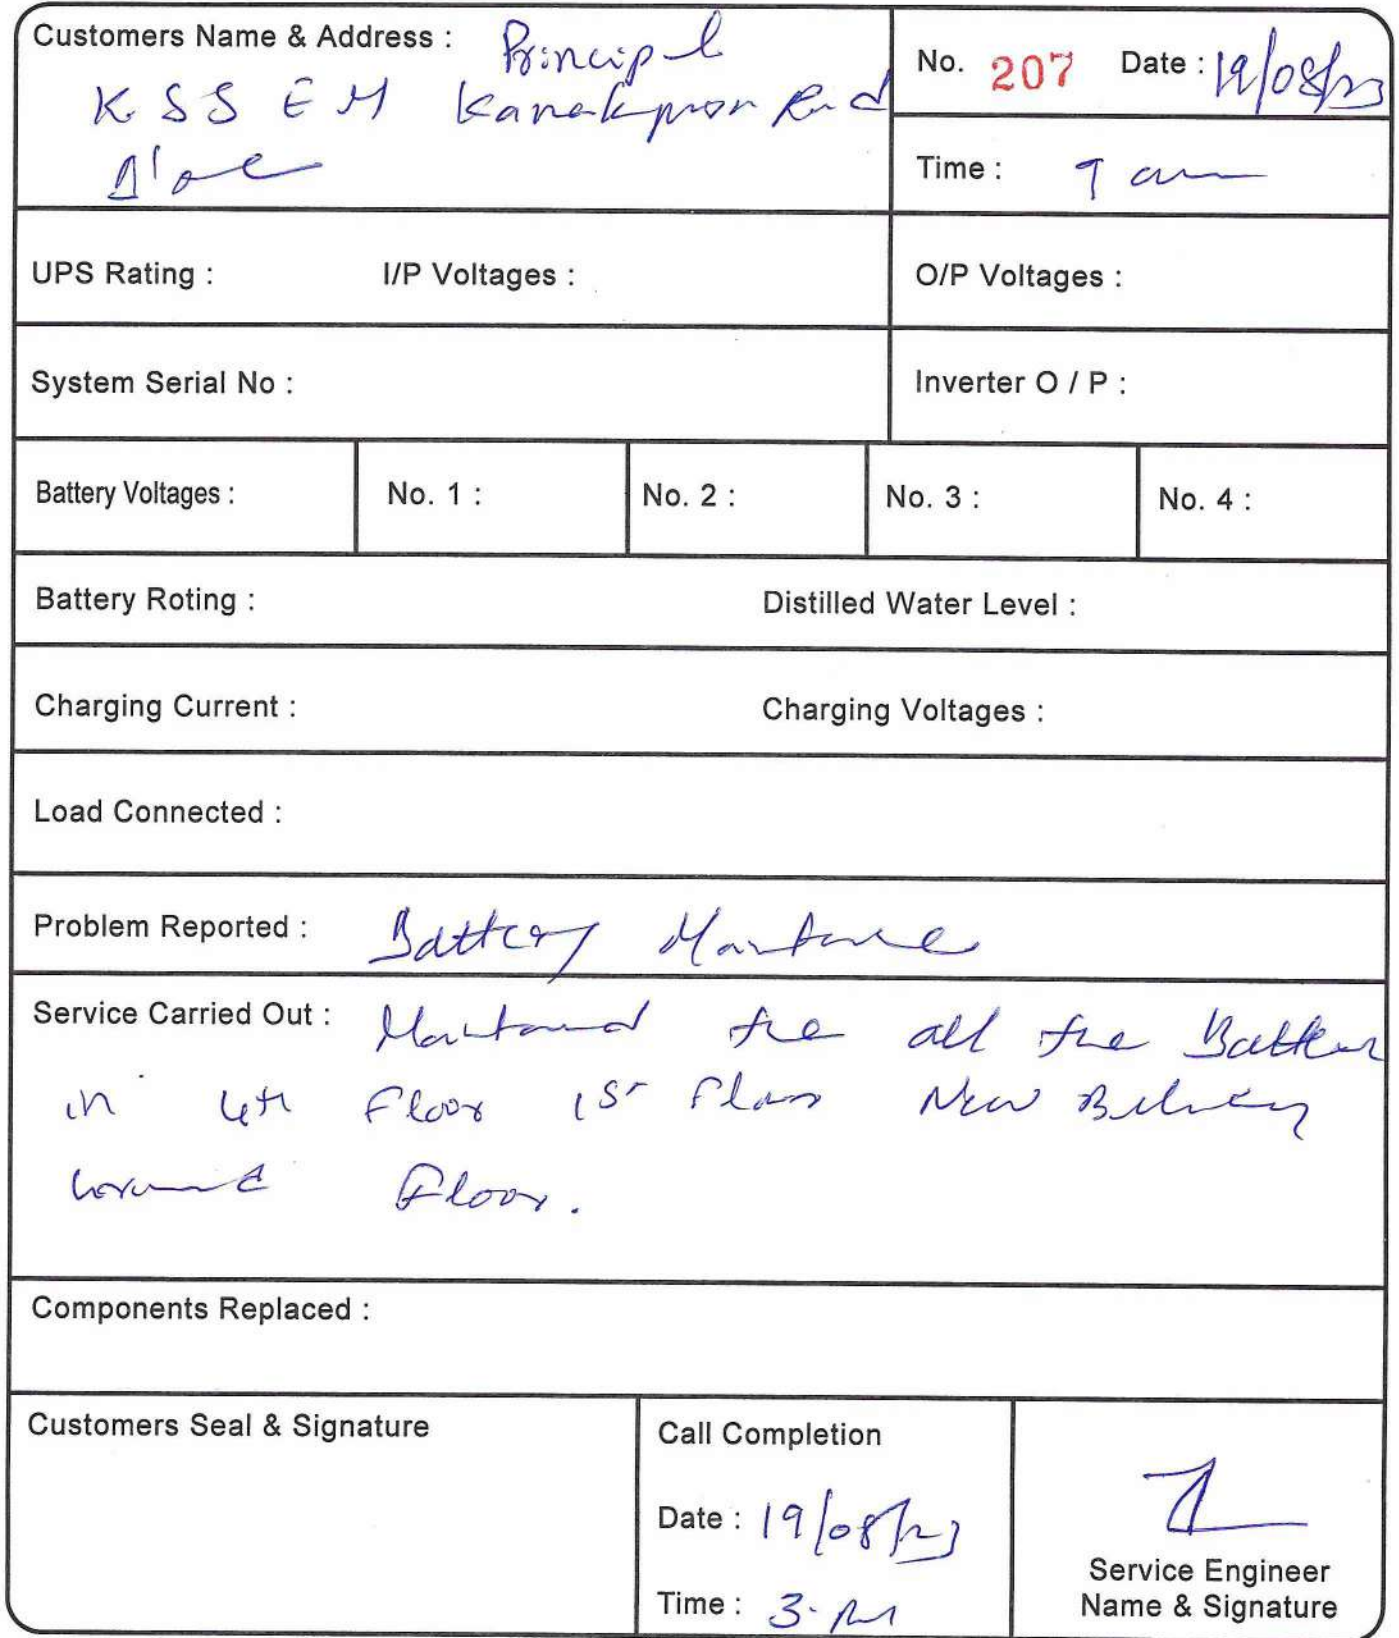 Customers Name & Address : Principal
K S S E M Kanakpura Road
B'lore
No. 207 Date : 19/08/23
Time : 9 am
UPS Rating : I/P Voltages : O/P Voltages :
System Serial No : Inverter O / P :
Battery Voltages : No. 1 : No. 2 : No. 3 : No. 4 :
Battery Roting : Distilled Water Level :
Charging Current : Charging Voltages :
Load Connected :
Problem Reported : Battery
Service Carried Out : the all the
in 4th Floor 1st Floor New
Ground Floor.
Components Replaced :
Customers Seal & Signature
Call Completion
Date : 19/08/23
Time : 3. PM
Service Engineer
Name & Signature